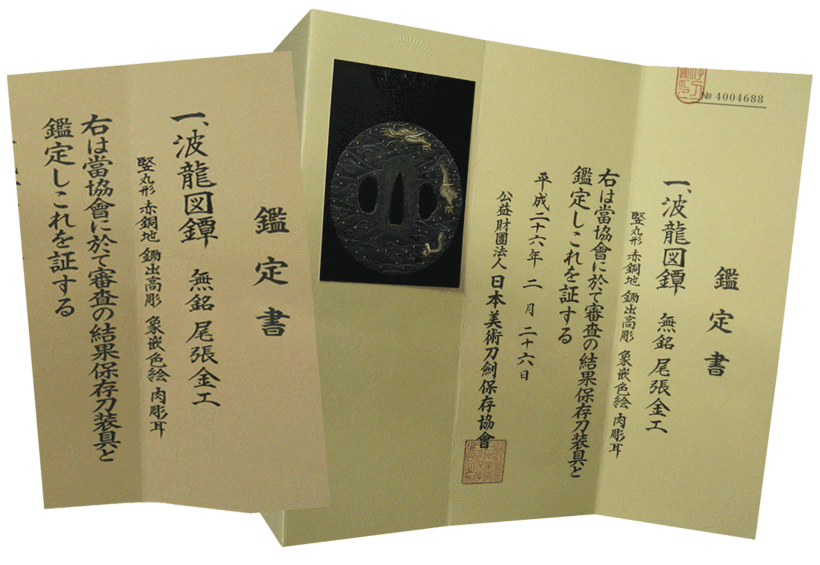 鑑定書
一、波龍図鐔 無銘 尾張金工
竪丸形 赤銅地 鋤出高彫 象嵌色絵 肉彫耳
右は當協會に於て審査の結果保存刀装具と
鑑定しこれを証する
№ 4004688
鑑定書
一、波龍図鐔 無銘 尾張金工
竪丸形 赤銅地 鋤出高彫 象嵌色絵 肉彫耳
右は當協會に於て審査の結果保存刀装具と
鑑定しこれを証する
平成二十六年 二月 二十六日
公益財團法人 日本美術刀劍保存協會